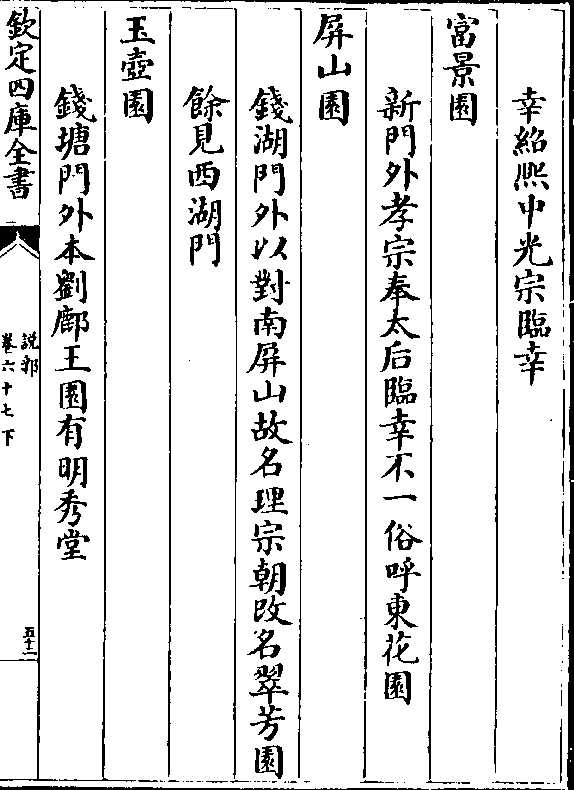 幸紹熈中光宗臨幸
富景園
新門外孝宗奉太后臨幸不一俗呼東花園
屏山園
錢湖門外以對南屏山故名理宗朝改名翠芳園
餘見西湖門
玉壺園
錢塘門外本劉鄜王園有明秀堂
欽定四庫全書
說郛
卷六十七下
五十二